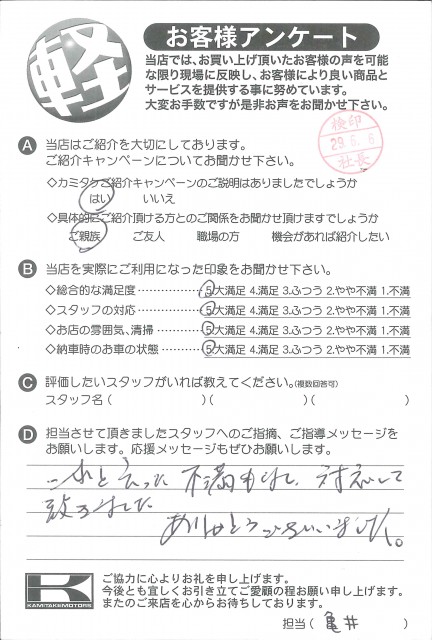 軽
お客様アンケート
当店では、お買い上げ頂いたお客様の声を可能
な限り現場に反映し、お客様により良い商品と
サービスを提供する事に努めています。
大変お手数ですが是非お声をお聞かせ下さい。
検印
29.6.6
社長
A 当店はご紹介を大切にしております。
ご紹介キャンペーンについてお聞かせ下さい。
◇カミタケご紹介キャンペーンのご説明はありましたでしょうか
はい いいえ
◇具体的にご紹介頂ける方とのご関係をお聞かせ頂けますでしょうか
ご親族 ご友人 職場の方 機会があれば紹介したい
B 当店を実際にご利用になった印象をお聞かせ下さい。
◇総合的な満足度……………5.大満足 4.満足 3.ふつう 2.やや不満 1.不満
◇スタッフの対応……………5.大満足 4.満足 3.ふつう 2.やや不満 1.不満
◇お店の雰囲気、清掃………5.大満足 4.満足 3.ふつう 2.やや不満 1.不満
◇納車時のお車の状態………5.大満足 4.満足 3.ふつう 2.やや不満 1.不満
C 評価したいスタッフがいれば教えてください。(複数回答可)
スタッフ名( )( )( )
D 担当させて頂きましたスタッフへのご指摘、ご指導メッセージを
お願いします。応援メッセージもぜひお願いします。
これと言った 不満もなし、対応して
ました
ありがとうございました。
K
KAMITAKEMOTORS
ご協力に心よりお礼を申し上げます。
今後とも宜しくお引き立てご愛顧の程お願い申し上げます。
またのご来店を心からお待ちしております。
担当( 亀井 )